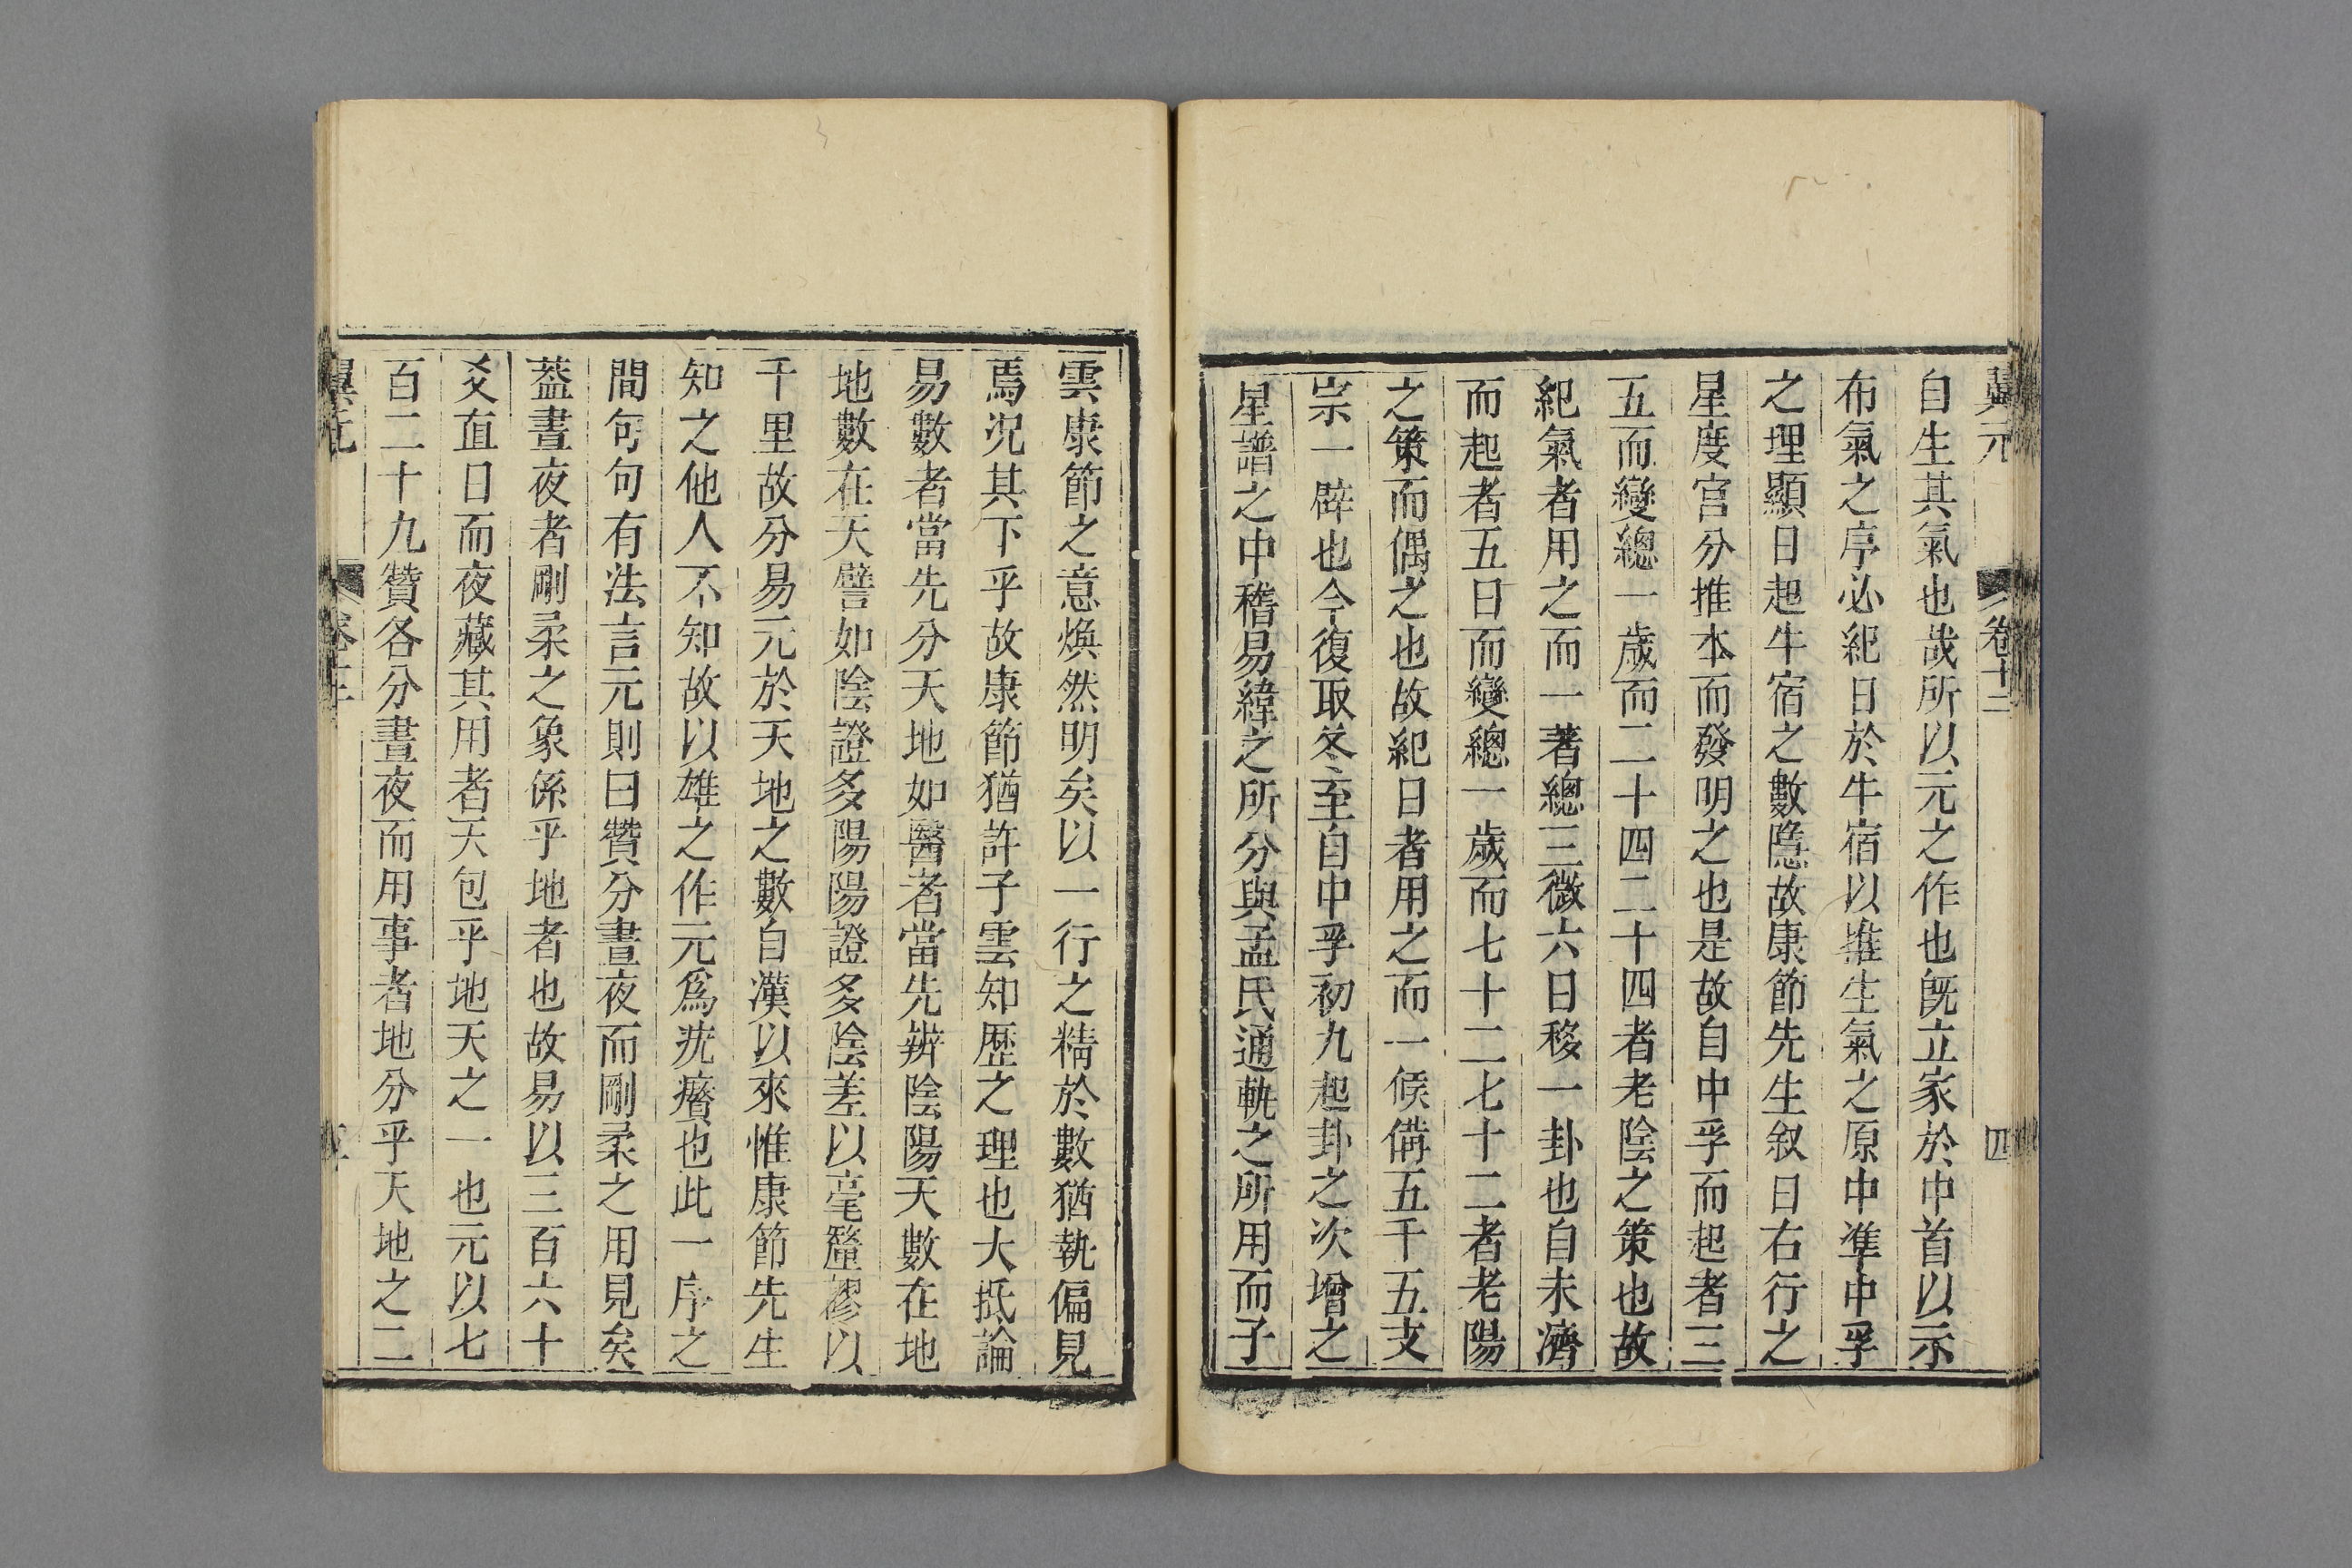 翼元 卷十二 四
自生其氣也哉所以元之作也旣立家於中首以示
布氣之序必紀日於牛宿以推生氣之原中準中孚
之理顯日起牛宿之數隱故康節先生叙日右行之
星度宫分推本而發明之也是故自中孚而起者三
五而變總一歲而二十四二十四者老陰之策也故
紀氣者用之而一著總三微六日移一卦也自未濟
而起者五日而變總一歲而七十二七十二者老陽
之策而偶之也故紀日者用之而一候備五千五支
宗一辟也今復取冬至自中孚初九起卦之次增之
星譜之中稽易緯之所分與孟氏通軌之所用而子
雲康節之意煥然明矣以一行之精於數猶執偏見
焉況其下乎故康節猶許子雲知歷之理也大抵論
易數者當先分天地如醫者當先辨陰陽天數在地
地數在天譬如陰證多陽陽證多陰差以毫釐繆以
千里故分易元於天地之數自漢以來惟康節先生
知之他人不知故以雄之作元爲疣癠也此一序之
間句句有法言元則曰贊分晝夜而剛柔之用見矣
葢晝夜者剛柔之象係乎地者也故易以三百六十
爻直日而夜藏其用者天包乎地天之一也元以七
百二十九贊各分晝夜而用事者地分乎天地之二
翼元